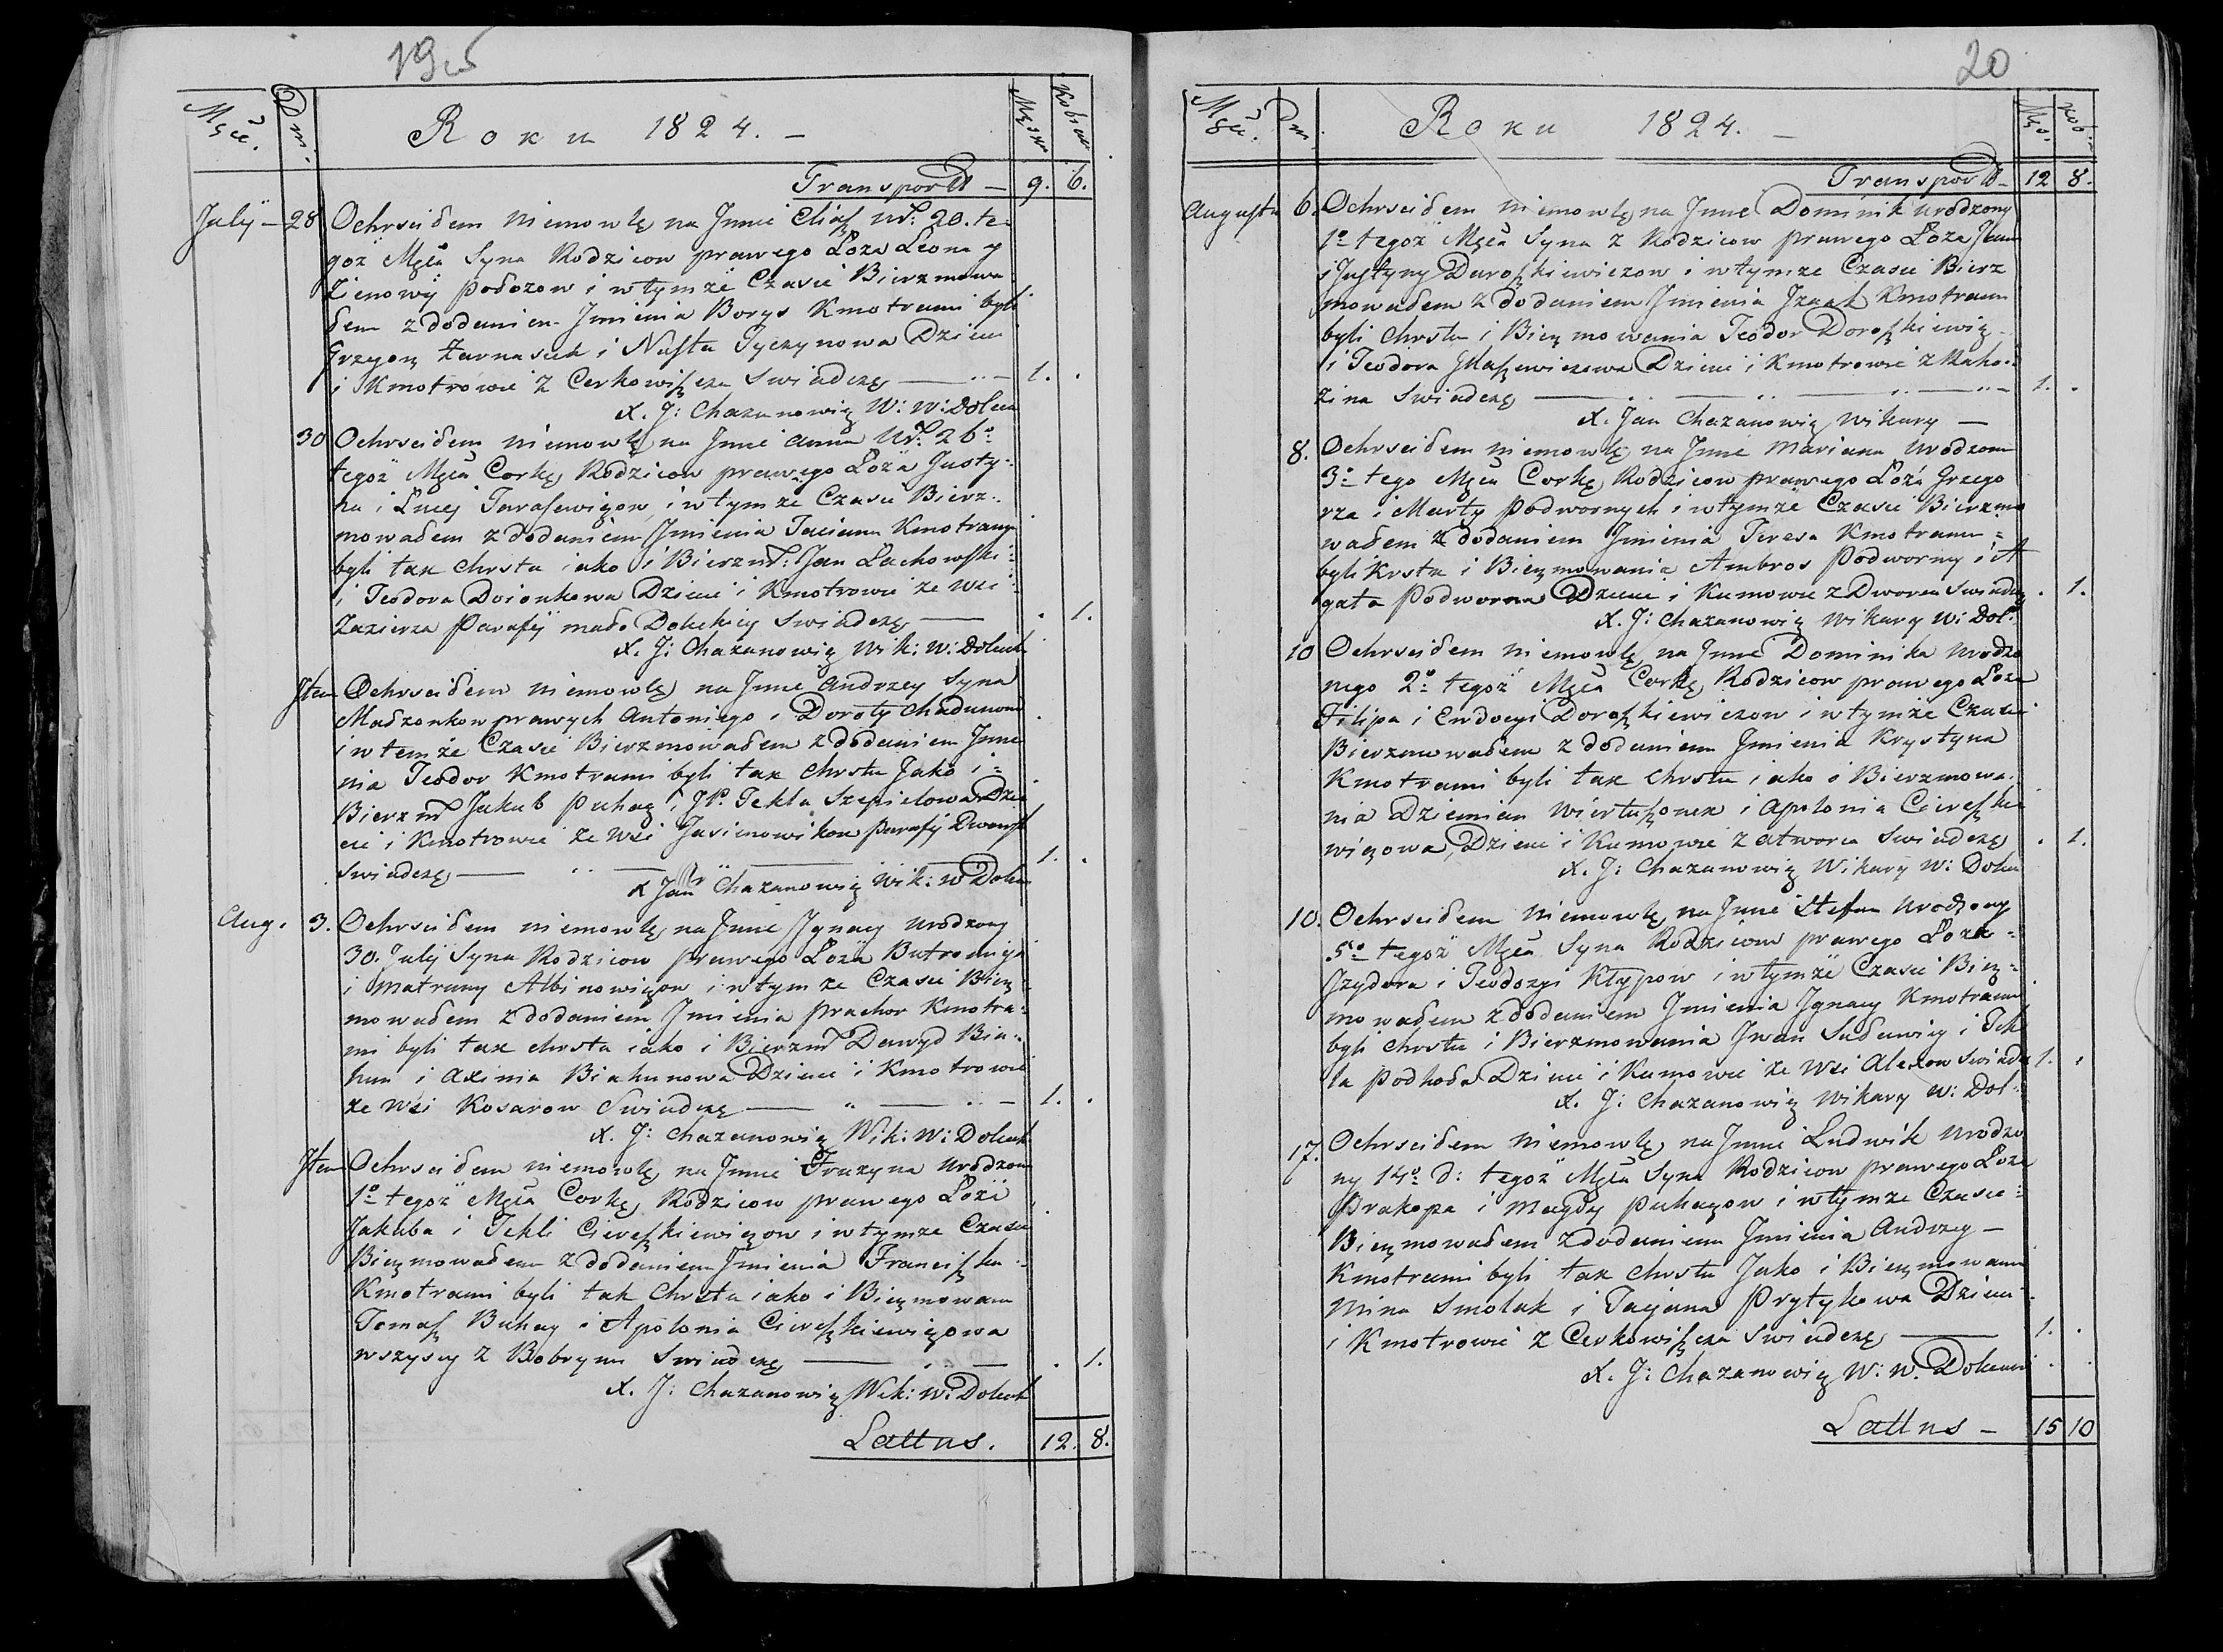 19
Mca. Dni. Roku 1824. – Męzk. Kobiet
Transport – 9. 6.
July – 28 Ochrściłem niemowlę na Jmie Eliasz Ur: 20. te-
goż Mca Syna Rodzicow prawego Łoża Leona y
Zienowij i w tymże Czasie Bierzmowa-
łem z dodaniem Jmienia Borys Kmotrami byli
Grzegorz Tarnasiuk i Nasta Dzieci
i Kmotrowie z Cerkowiszcza Swiadczę — 1. .
X. J: Chazanowicz W: W: Dolck
30 Ochrściłem niemowlę na Jmie Anna Ur: 26º
tegoż Mca Corkę Rodzicow prawego Łoża Justy-
na i Łucij Tarasewiczow i w tymże Czasie Bierz-
mowałem z dodaniem Jmienia Taciana Kmotrami
byli tak Chrstu iako i Bierzm: Jan Lachowski
i Teodora Dzieci i Kmotrowie ze Wsi
Zazierza Parafij mało Dolckiey Swiadczę — . 1.
X. J: Chazanowicz Wik: W: Dolck
Item Ochrściłem niemowlę na Jmie Andrzey Syna
Małzonkow prawych Antoniego i Doroty
i w temże Czasie Bierzmowałem z dodaniem Jmie
nia Teodor Kmotrami byli tak Chrstu Jako i
Bierzm Jakub Puhacz i JP. Tekla Szepielowa Dzie
ci i Kmotrowie ze Wsi Parafij
Swiadczę — 1. .
X Jan Chazanowicz Wik: W Dolck
Aug. 3. Ochrściłem niemowlę na Jmie Jgnacy Urodzony
30. July Syna Rodzicow prawego Łoża
i Matruny Albinowiczow i w tymze Czasie Bierz
mowałem z dodaniem Jmienia Prachor Kmotra-
mi byli tak Chrstu iako i Bierzm Dawyd Bia-
hun i Axinia Biahunowa Dzieci i Kmotrowie
ze Wsi Kosarow Swiadczę — 1. .
X. J: Chazanowicz Wik: W: Dolck
Item Ochrściłem niemowlę na Jmie Fruzyna Urodzona
1º tegoż Mca Corkę Rodzicow prawego Łoża
Jakuba i Tekli Cireszkiewiczow i w tymze Czasie
Bierzmowałem z dodaniem Jmienia Franciszka
Kmotrami byli tak Chrstu iako i Bierzmowania
Tomasz Buhay i Apolonia Cireszkiewiczowa
wszyscy z Bobryna Swiadczę — . 1.
X. J: Chazanowicz Wik: W: Dolck
Lattus. 12. 8.
20
Mca. Dni Roku 1824. – Męz. Kob.
Transport – 12 8.
Augusta 6. Ochrściłem niemowlę na Jmie Dominik urodzony
1º tegoż Mca Syna z Rodzicow prawego Łoża Jana
i Justyny Doroszkiewiczow i w tymze Czasie Bierz
mowałem z dodaniem Jmienia Jzaak Kmotrami
byli Chrstu i Bierzmowania Teodor Doroszkiewicz
i Teodora Dzieci i Kmotrowie z Raho-
zina Swiadczę — 1. .
X. Jan Chazanowicz Wikary —
8. Ochrściłem niemowlę na Jmie Mariana Urodzona
3º tego Mca Corkę Rodzicow prawego Łoża Grzego
rza i Marty Podwornych i w tymże Czasie Bierzmo
wałem z dodaniem Jmienia Teresa Kmotrami
byli Krstu i Bierzmowania Ambros Podworny i A
gata Podworna Dzieci i Kumowie z Dworca Swiadczę . 1.
X. J: Chazanowicz Wikary W: Dol:
10 Ochrściłem niemowlę na Jmie Dominika Urodzo
nego 2º tegoż Mca Corkę Rodzicow prawego Łoża
Filipa i Ewdocyi Doroszkiewiczow i w tymże Czasie
Bierzmowałem z dodaniem Jmienia Krystyna
Kmotrami byli tak Chrstu iako i Bierzmowa-
nia Dziemian i Apolonia Cireszkie
wiczowa, Dzieci i Kumowie z Swiadczę . 1.
X. J: Chazanowicz Wikary W: Dolck
10. Ochrściłem niemowlę na Jmie Stefan Urodzony
5º tegoż Mca Syna Rodzicow prawego Łoża
Jzydora i Teodozyi Kłypow i w tymże Czasie Bierz-
mowałem z dodaniem Jmienia Jgnacy Kmotrami
byli Chrstu i Bierzmowania Jwan i Tek
la Dzieci i Kumowie ze Wsi Swiadczę 1. .
X. J: Chazanowicz Wikary W: Dol:
17. Ochrściłem niemowlę na Jmie Ludwik Urodzo
ny 14º d: tegoż Mca Syna Rodzicow prawego Łoża
Prakopa i Magdy Puhaczow i w tymze Czasie
Bierzmowałem z dodaniem Jmienia Andrzey –
Kmotrami byli tak Chrstu Jako i Bierzmowania
Mina Smolak i Tacjana Prytykowa Dzieci
i Kmotrowie z Cerkowiszcza Swiadczę — 1. .
X. J: Chazanowicz W: W. Dolcki
Lattus – 15 10